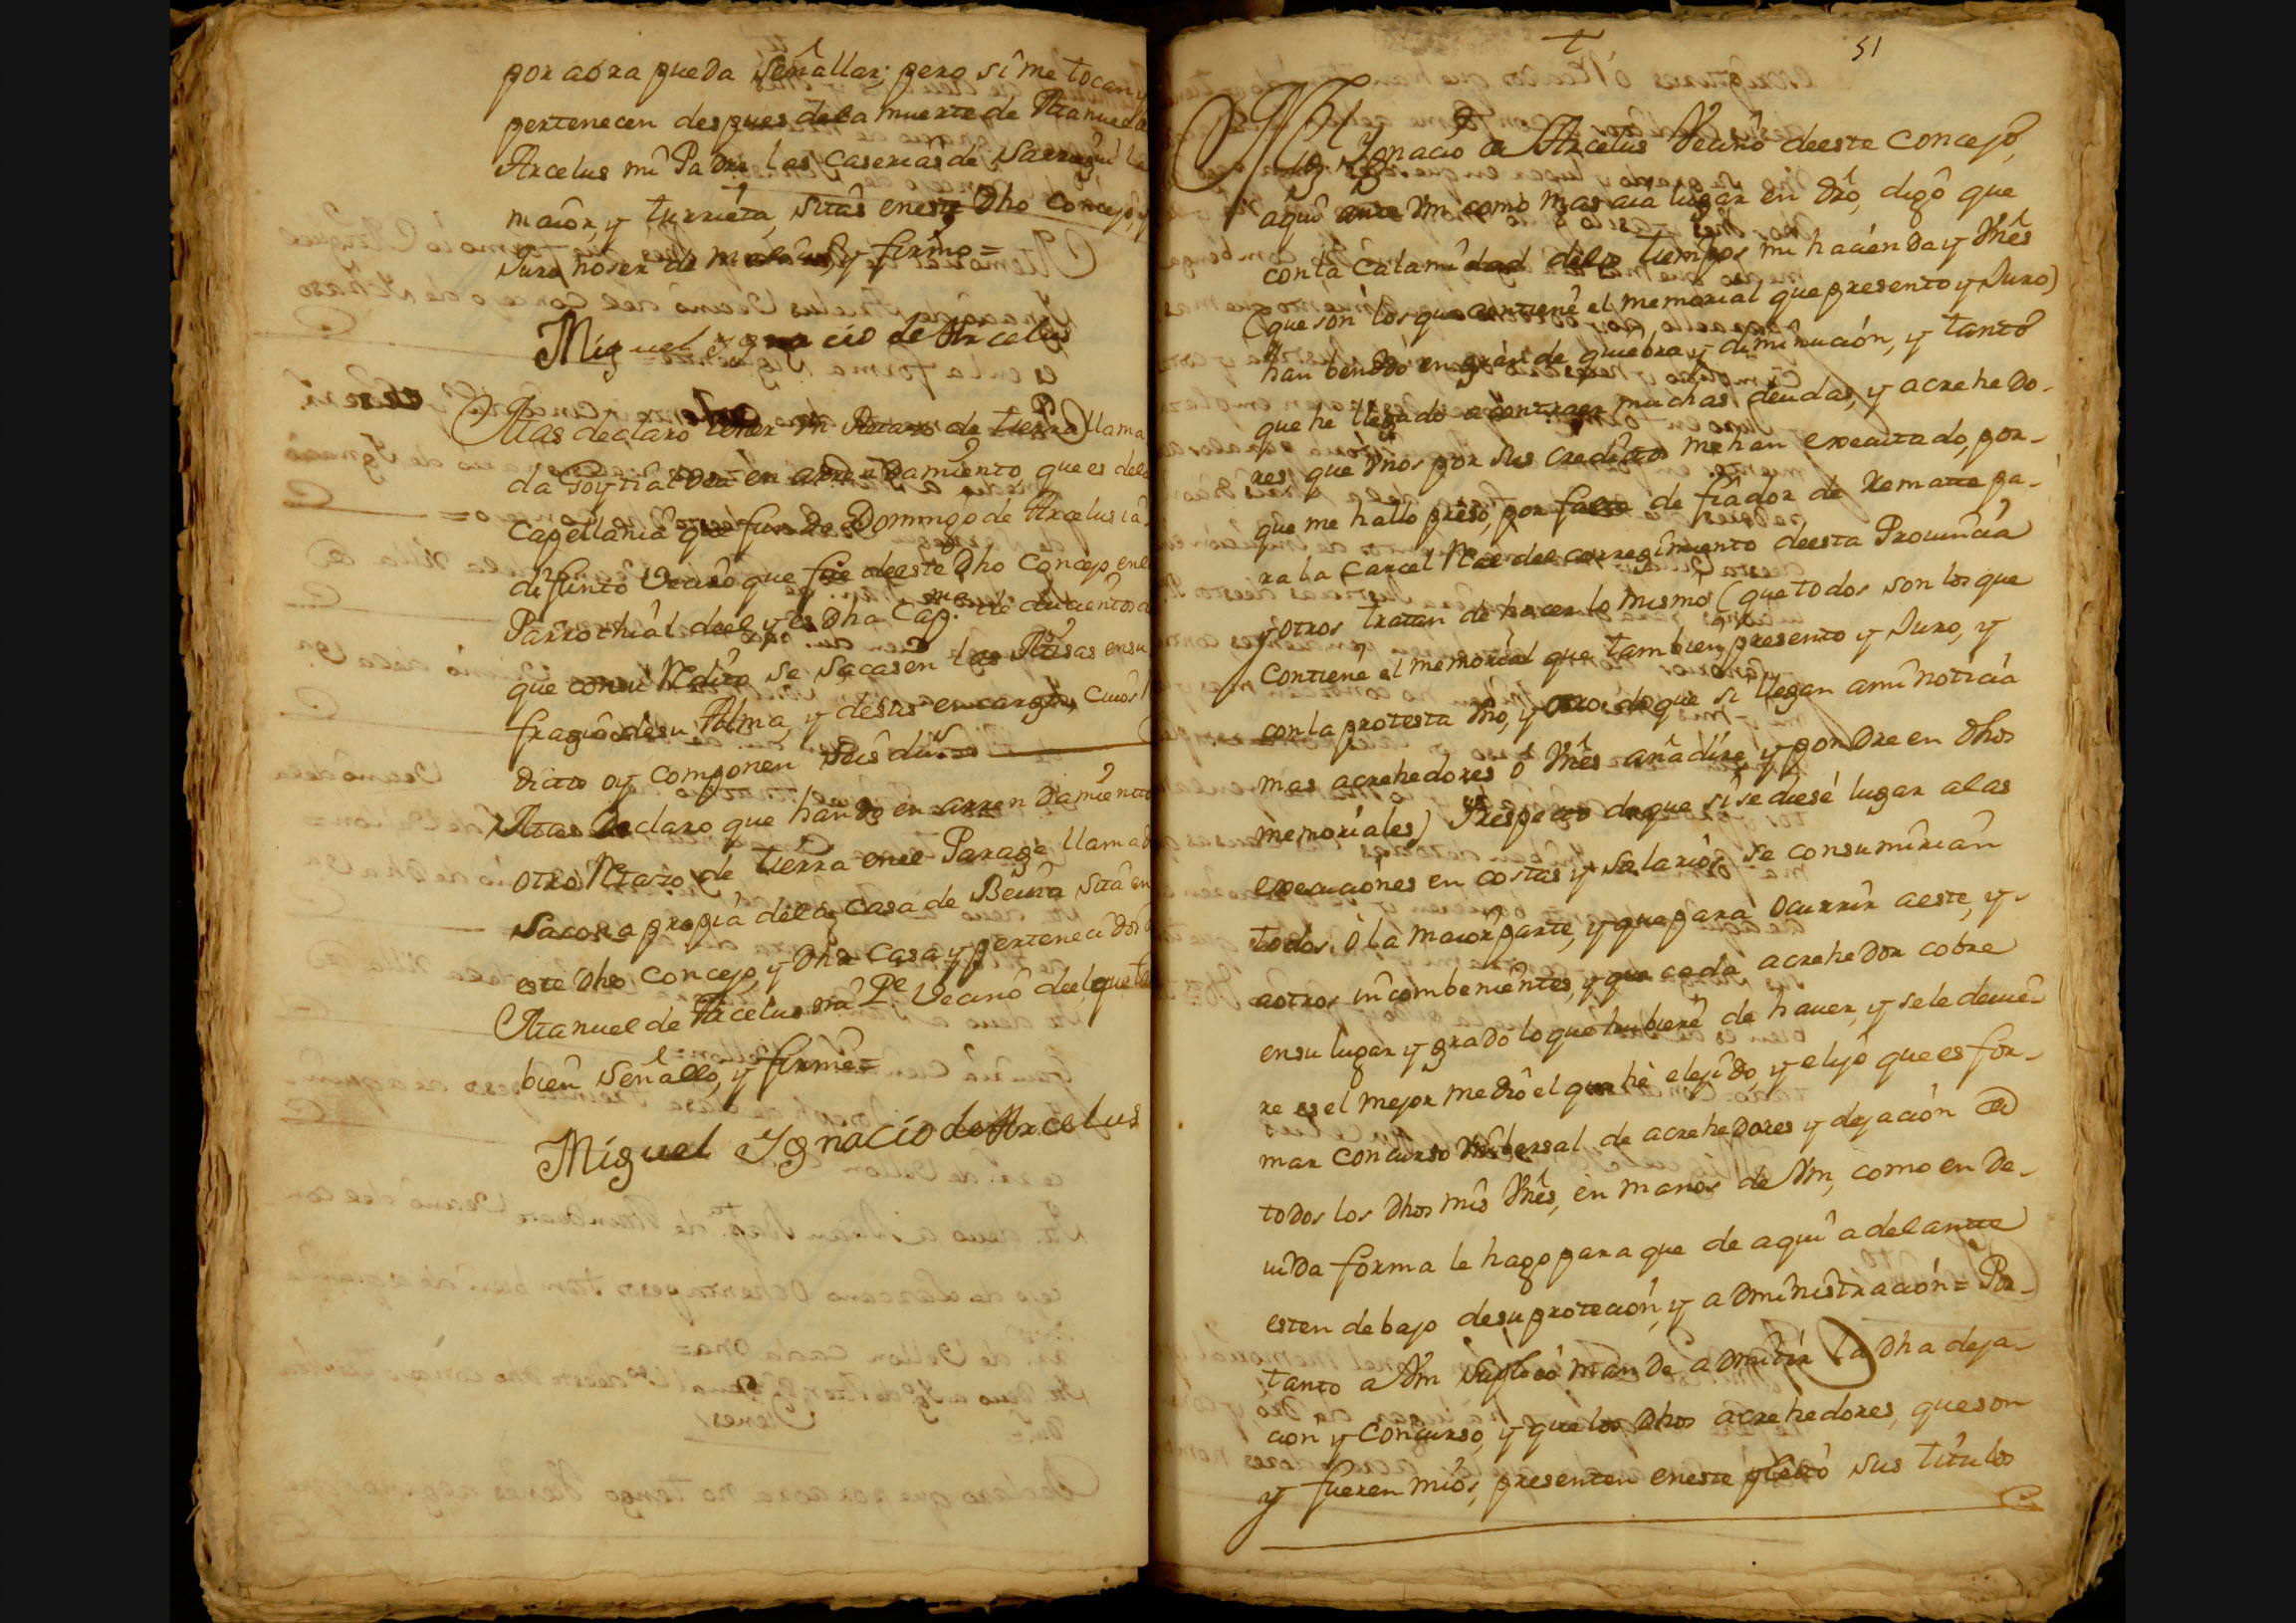 por aora pueda señallar; pero si me tocan y
pertenecen despues dela muerte de Manuel de
Arcelus mi Padre las caserias de Sarregui la
maior, y turrieta, sitas eneste Dho Concejo, y
Juro no ser de malicia, y firmo =
Miguel Ygnacio de Arcelus
Mas declaro tener Vn Pedazo de tierra llama
da Goytialdea en arrendamiento que es dela
Capellania que fundo Domingo de Arcelus ia
difunto Vecino que fue deeste Dho Concejo, enla
Parrochial deel y es Dha Cap.nia de ducientos d
que con su Redito se sacasen las Misas en su
fragio desu Alma, y desus encargos, cuios
dicto oy componen seis du.s
Mas Declaro que hando en arrendamiento
otro Retazo de tierra enel Parage llamad
Sacona propia dela Casa de Beuña sita en
este Dho Concejo, y Dha Casa y pertenecidos
Manuel de Arcelus mi P.e Vecino deel, que ta
bien señallo, y firme =
Miguel Ygnacio de Arcelus
51
Mig.l Ygnacio de Arcelus Vecino deeste Concejo,
aqui ante Vm como mas aia lugar en Dro, digo que
con la Calamidad delos tiempos mi hacienda y Vnes
(que son los que contiene el memorial que presento y Juro)
han benido en grande quiebra y diminucion, y tanto
que he llegado a contraer muchas deudas, y acrehedo-
res que Vnos por sus creditos me han executado, por-
que me hallo preso, por falta de fiador de Remate pa-
ra la Carcel Rl del corregimiento deesta Prouincia
y otros tratan de hacer lo mismo (que todos son los que
Contiene el memorial que tambien presento y Juro, y
con la protesta Vno, y otro de que si llegan ami noticia
mas acrehedores ó Vnes añadire, y pondre en Dhos
memoriales) Respecto deque si se diese lugar alas
execuciones en costas y salarios se consumirian
todos, ó la maior parte, y que para ocurrir aeste, y
aotros incombenientes, y que cada acrehedor cobre
ensu lugar y grado lo que hubiere de hauer, y sele deuie-
re es el mejor medio el que he elejido, y elijo que es for-
mar concurso Vnibersal de acrehedores y dejacion de
todos los Dhos mis Vnes, en manos de Vm, como en De-
uida forma le hago para que de aqui adelante
esten debajo desu proteccion, y administracion = Por
tanto a Vm suplico mande admitir la Dha deja-
cion y Concurso, y que los Dhos acrehedores, que son
y fueren mios, presenten eneste pleito sus titulos